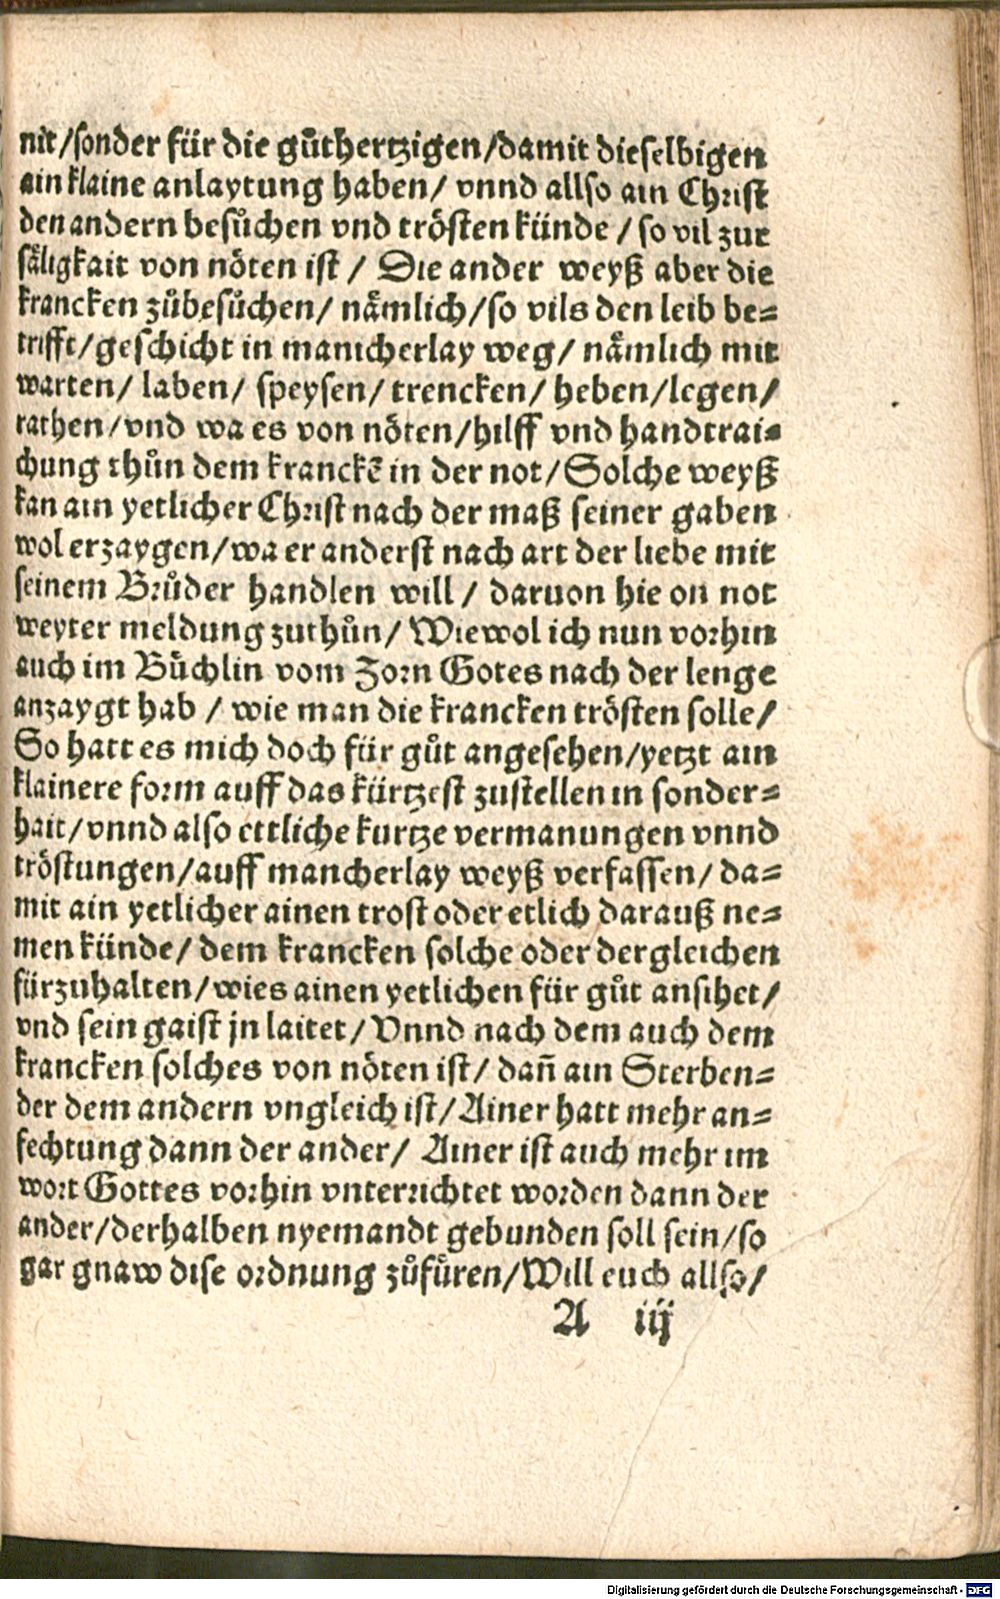 nit/sonder für die gůthertzigen/damit dieselbigen
ain klaine anlaytung haben/ vnnd allso ain Christ
den andern besůchen vnd trösten künde / so vil zur
såligkait von nöten ist / Die ander weyß aber die
krancken zůbesůchen/ nåmlich/so vils den leib be=
trifft/geschicht in manicherlay weg/ nåmlich mit
warten/ laben/ speysen/ trencken/ heben/legen/
rathen/vnd wa es von nöten/hilff vnd handtrai=
chung thůn dem kranckē in der not/Solche weyß
kan ain yetlicher Christ nach der maß seiner gaben
wol erzaygen/wa er anderst nach art der liebe mit
seinem Brůder handlen will / daruon hie on not
weyter meldung zuthůn/ Wiewol ich nun vorhin
auch im Bůchlin vom Zorn Gotes nach der lenge
anzaygt hab / wie man die krancken trösten solle/
So hatt es mich doch für gůt angesehen/yetzt ain
klainere form auff das kürtzest zustellen in sonder=
hait/vnnd also ettliche kurtze vermanungen vnnd
tröstungen/auff mancherlay weyß verfassen/ da=
mit ain yetlicher ainen trost oder etlich darauß ne=
men künde/ dem krancken solche oder dergleichen
fürzuhalten/wies ainen yetlichen für gůt ansihet/
vnd sein gaist jn laitet/ Vnnd nach dem auch dem
krancken solches von nöten ist/ dañ ain Sterben=
der dem andern vngleich ist/Ainer hatt mehr an=
fechtung dann der ander/ Ainer ist auch mehr im
wort Gottes vorhin vnterrichtet worden dann der
ander/derhalben nyemandt gebunden soll sein/so
gar gnaw dise ordnung zůfůren/Will euch allso/
A iij
Digitalisierung gefördert durch die Deutsche Forschungsgemeinschaft - DFG